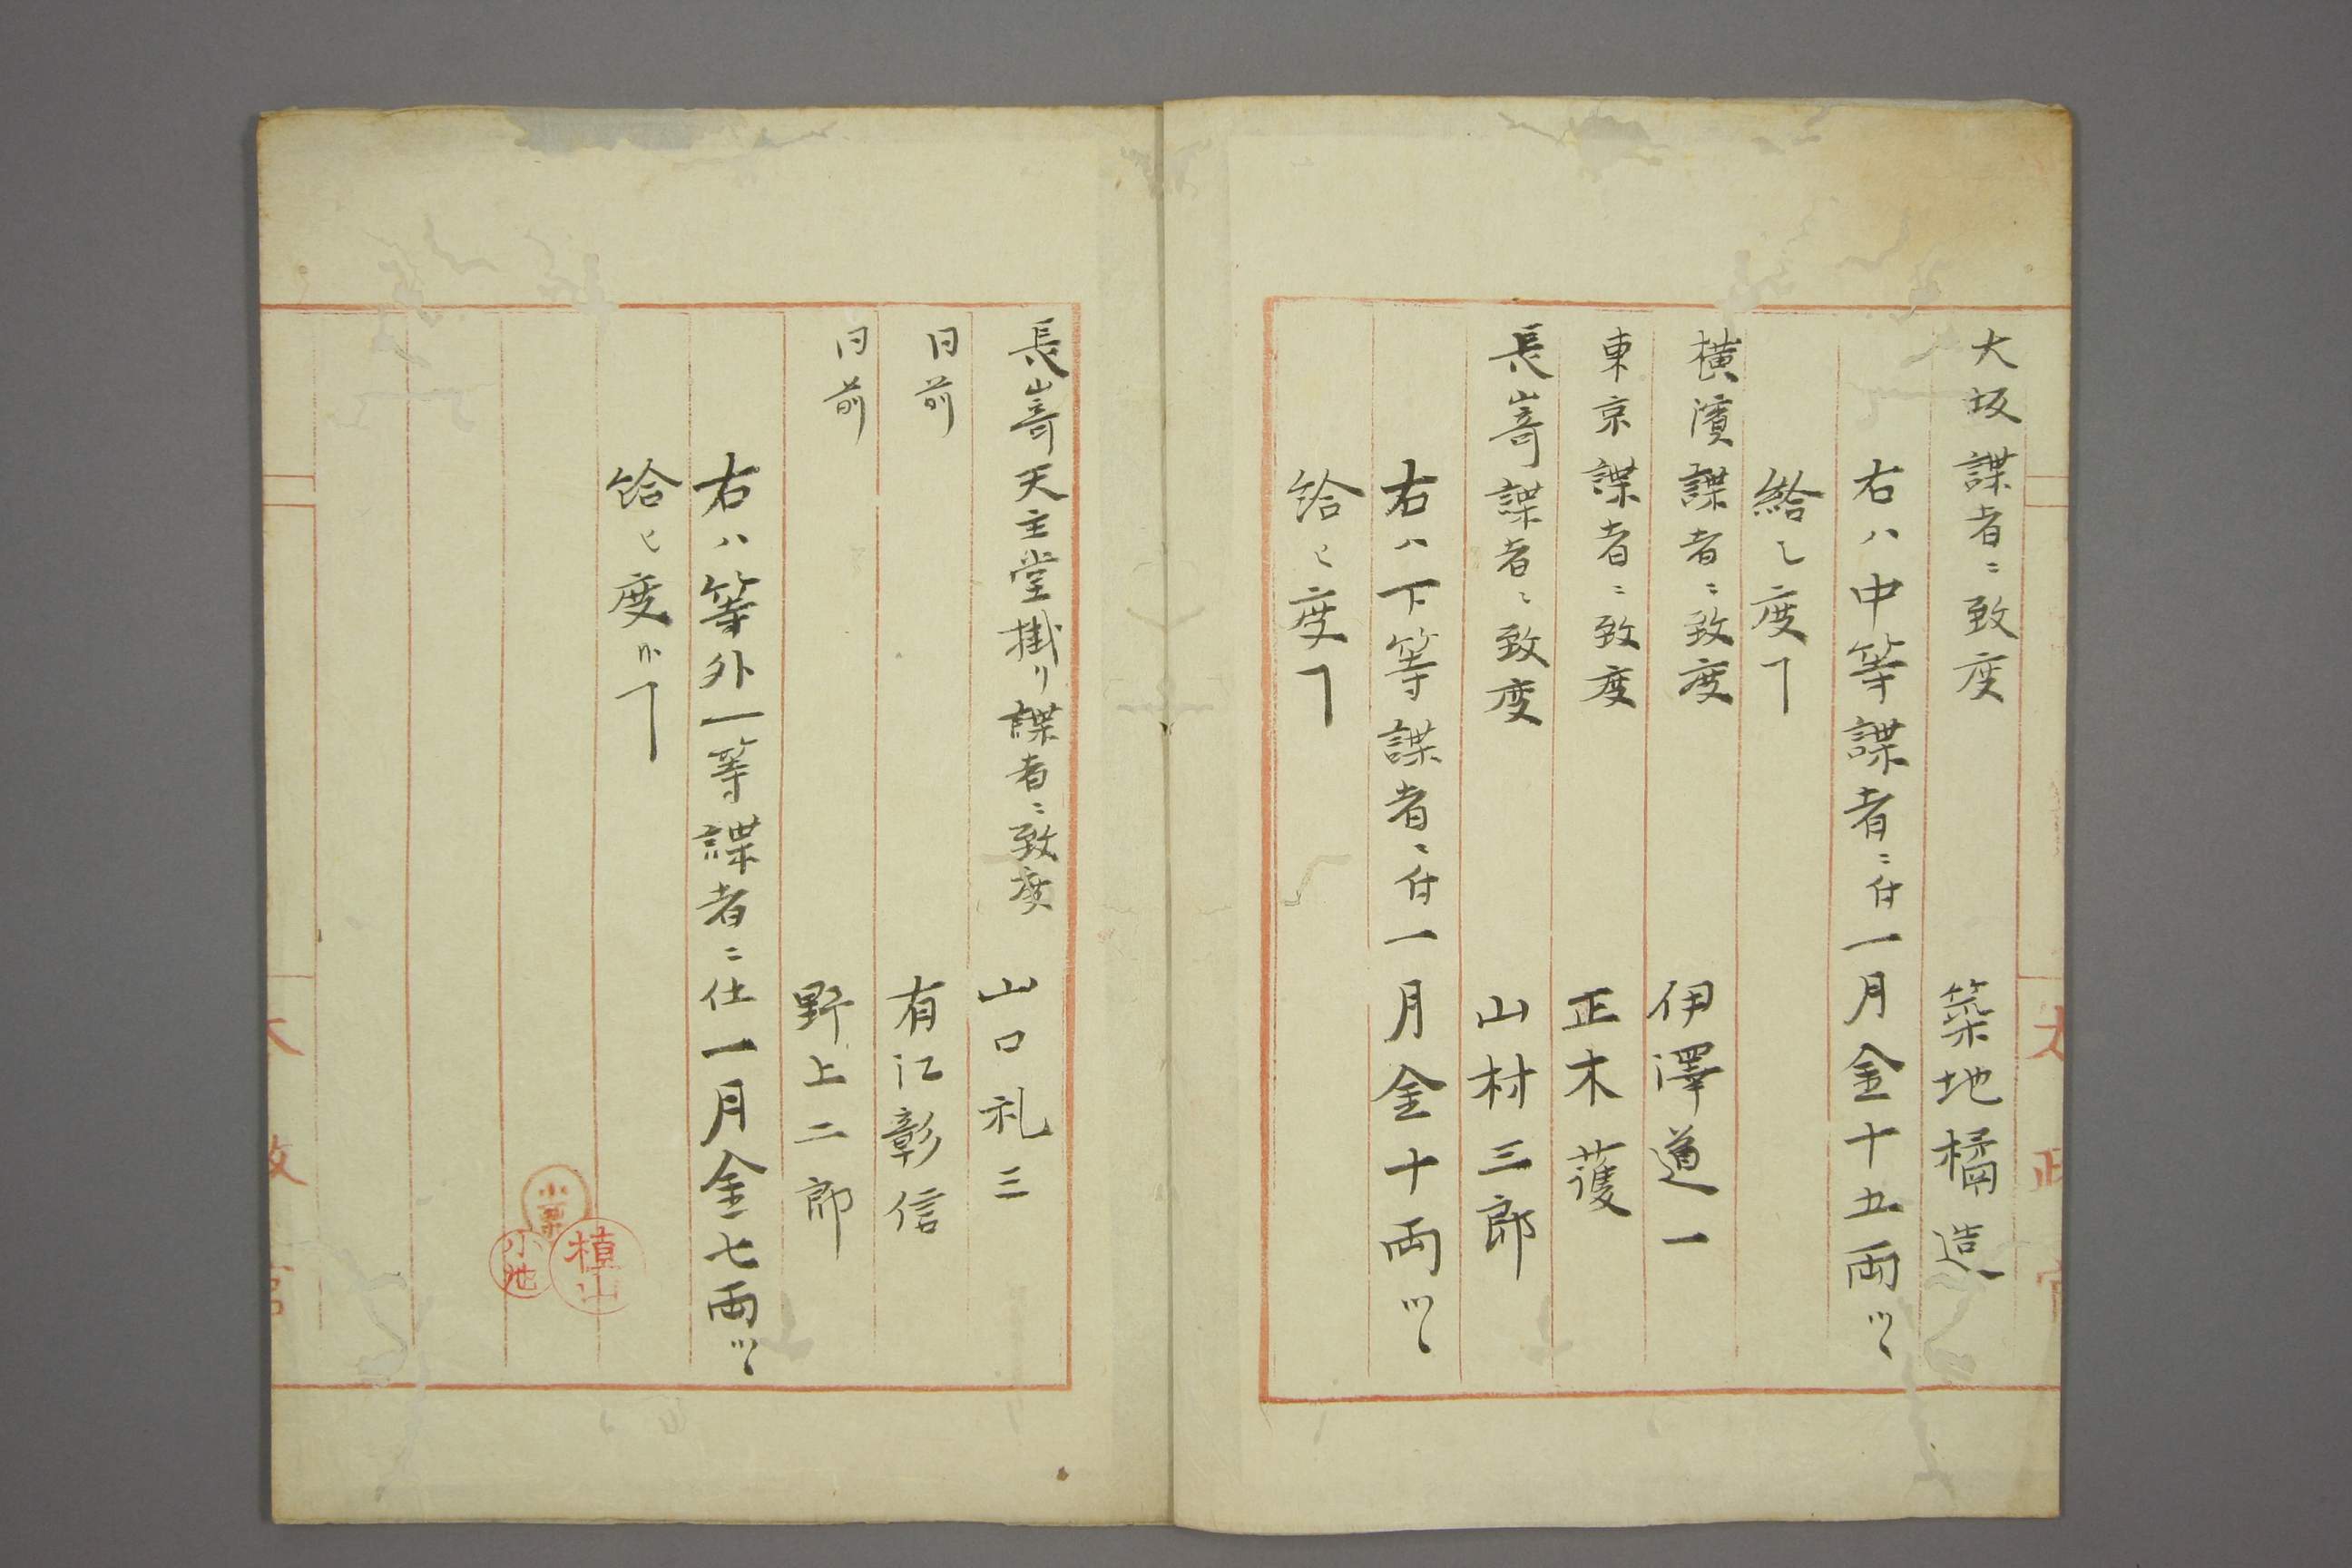 大坂諜者ニ致度　築地橘造
右ハ中等諜者ニ付一月金十五両ツヽ
給シ度ヿ
横濱諜者ニ致度　伊澤道一
東京諜者ニ致度　正木護
長嵜諜者ニ致度　山村三郎
右ハ下等諜者ニ付一月金十両ツヽ
給シ度ヿ
長嵜天主堂掛リ諜者ニ致度　山口礼三
同前　有江彰信
同前　野上二郎
右ハ等外一等諜者ニ仕一月金七両ツヽ
給シ度ヿ
植山
太政官